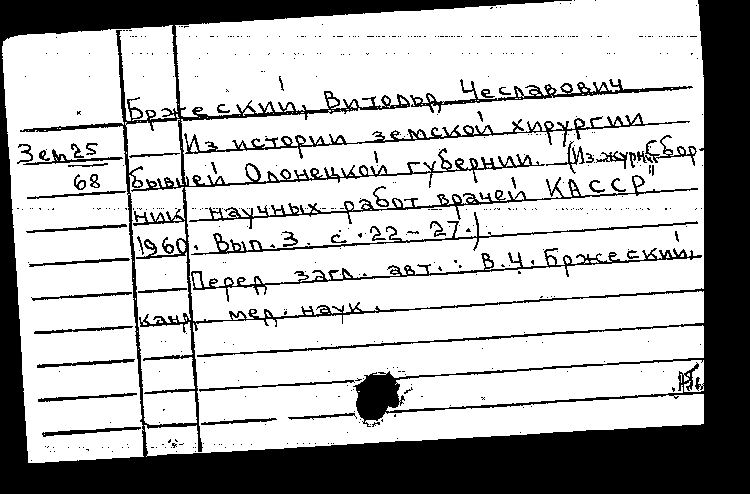 Бржеский, Витольд Чеславович
Зем 25
68
Из истории земской хирургии
бывшей Олонецкой губернии. (Из журн. "Сбор-
ник научных работ врачей КАССР"
1960. Вып. 3. с. 22-27.).
Перед загл. авт.: В.Ч. Бржеский,
канд. мед. наук.